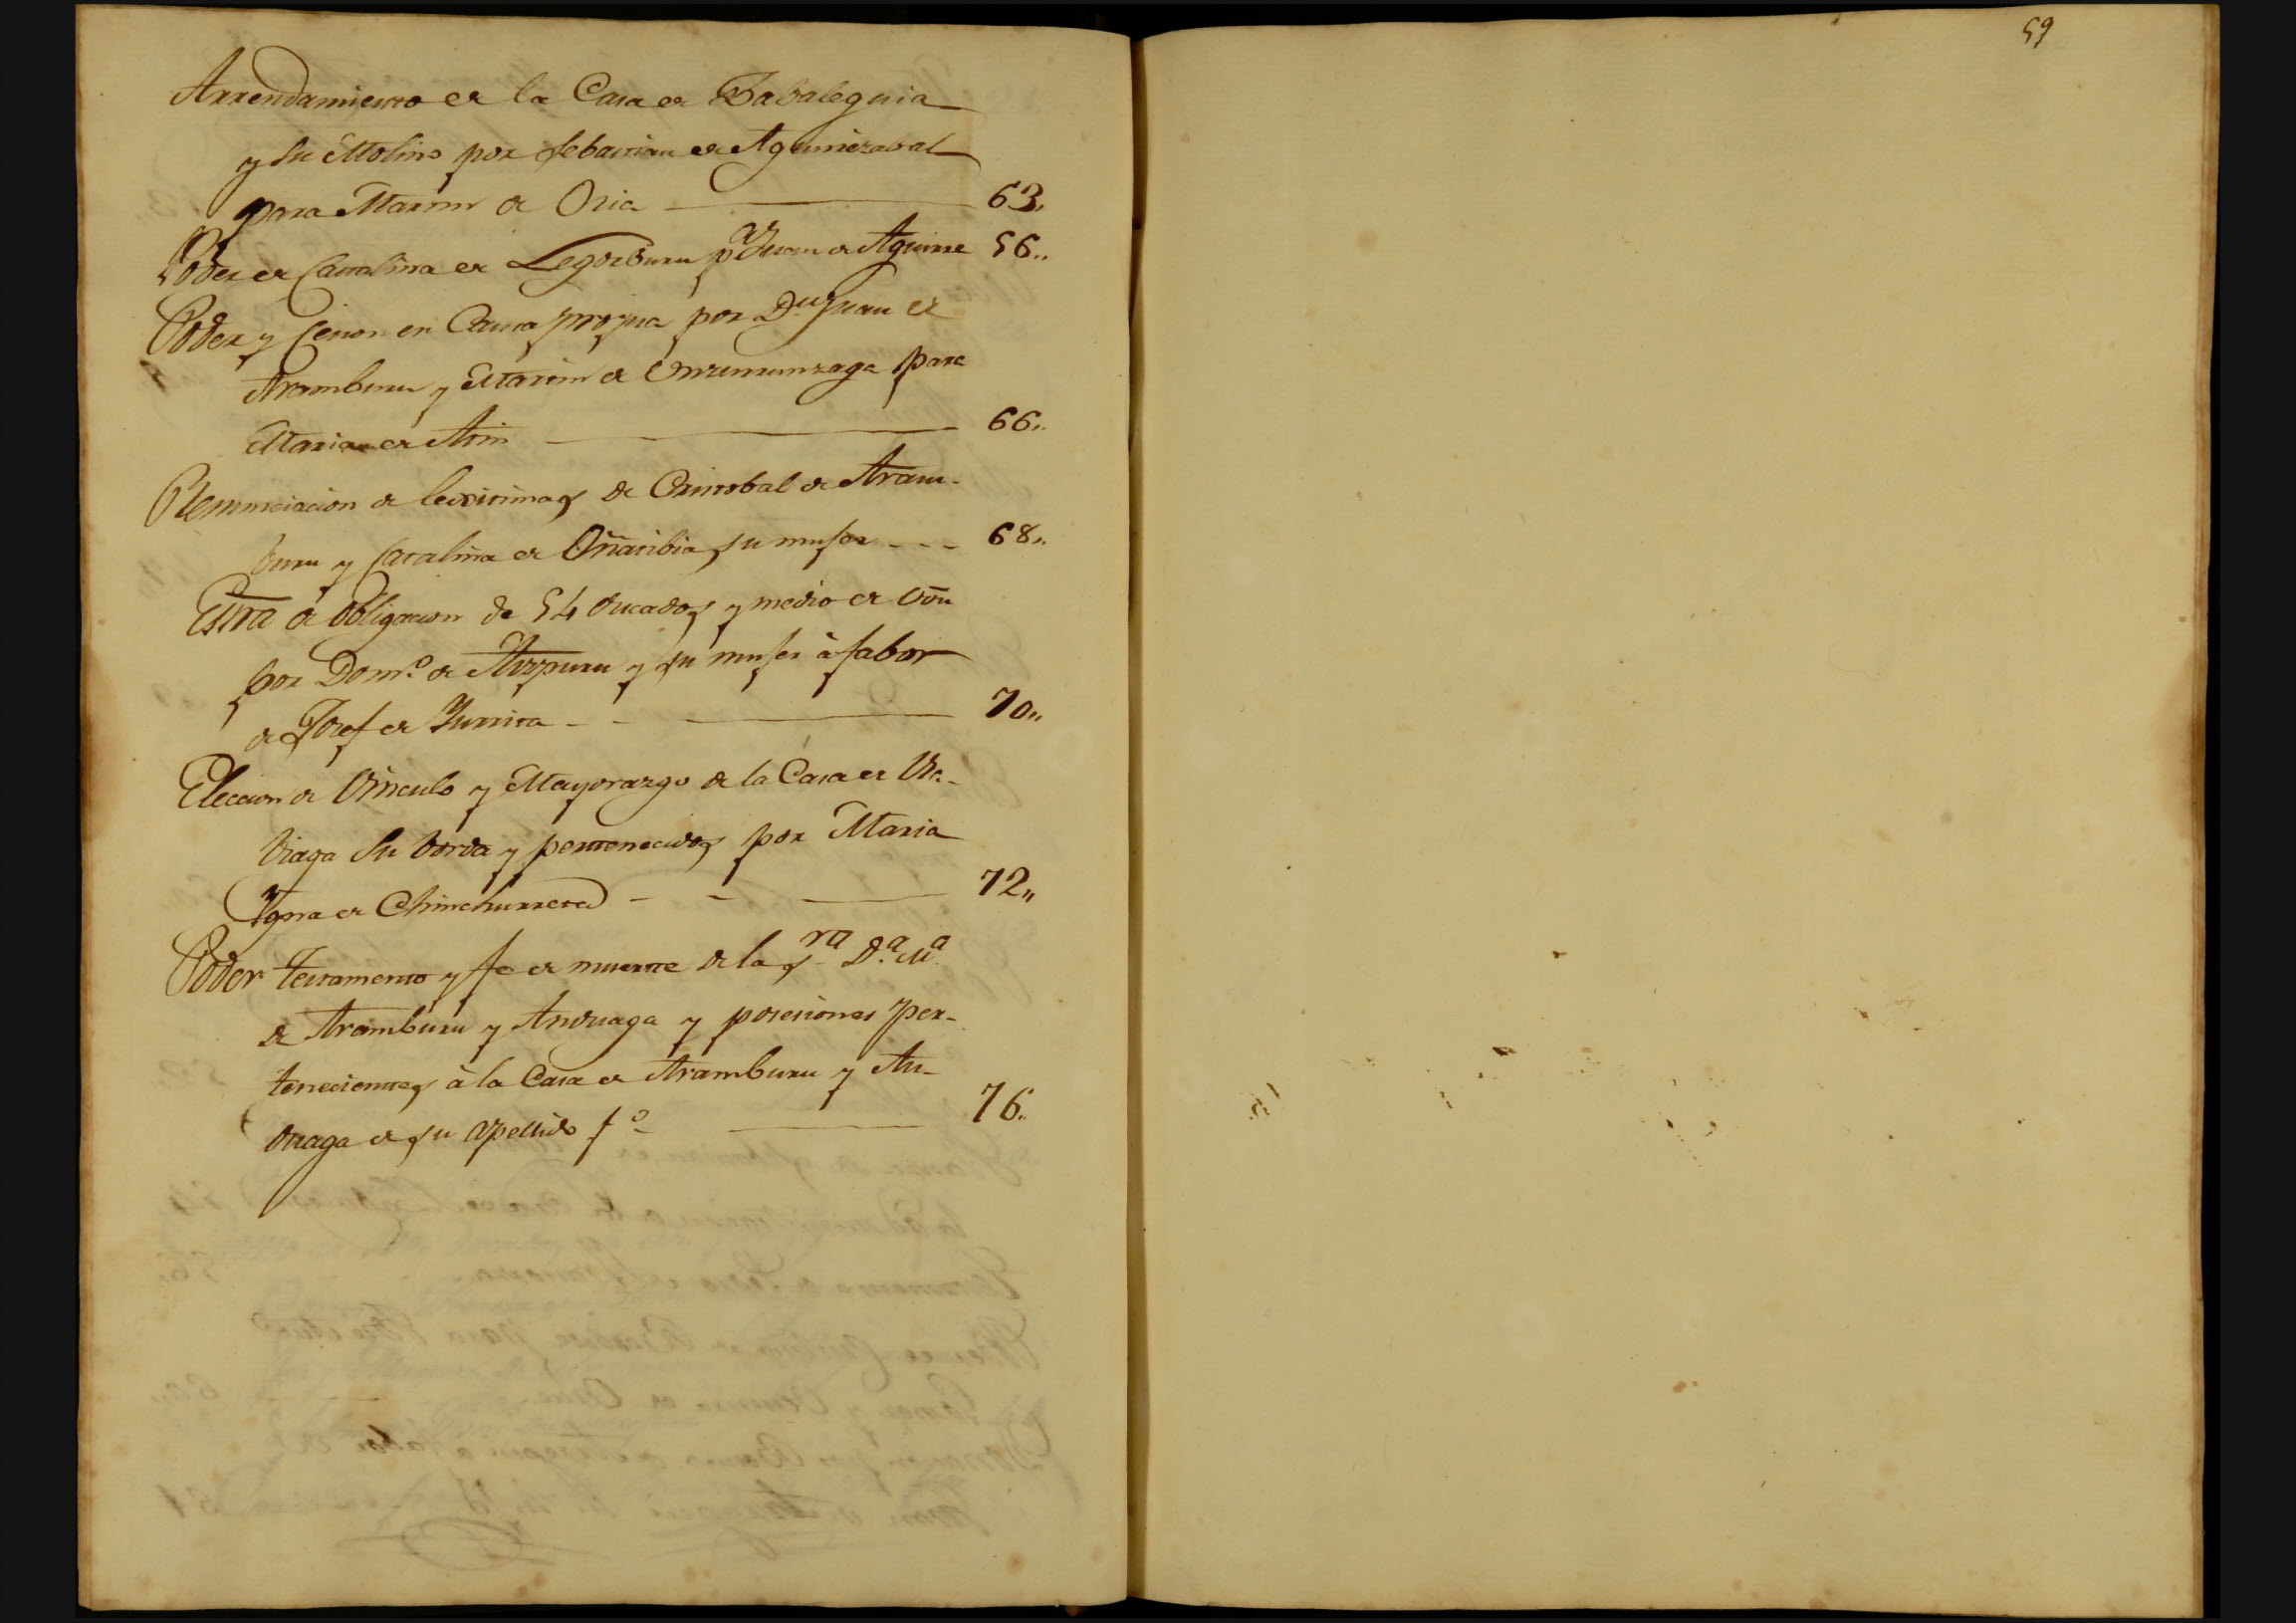 59
Arrendamiento de la Casa de Zabaleguia
y su Molino por Sebastian de Aguirrezabal
para Martin de Oria 63,
Poder de Catalina de Legorburu pª Juan de Aguirre 56..
Poder y Cesion en Causa propria por Dn Juan de
Aramburu y Martin de Unzurrunzaga para
Maria de Arin 66..
Renunciacion de lexitimas de Cristobal de Aram-
buru y Catalina de Oñatibia su muger 68..
Essra de Obligacion de 54 ducados y medio de von
por Domo. de Aizpuru y su muger à fabor
de Josef de Yurrita 70..
Eleccion de Vinculo y Mayorazgo de la Casa de
su borda y pertenecidos por Maria
Ygna de Chinchurreta 72..
Poder testamento y fe de muerte de la Sra. D.a Ma.
de Aramburu y Anduaga y posesiones per-
tenecientes à la Casa de Aramburu y An-
duaga de su apellido fo. 76..